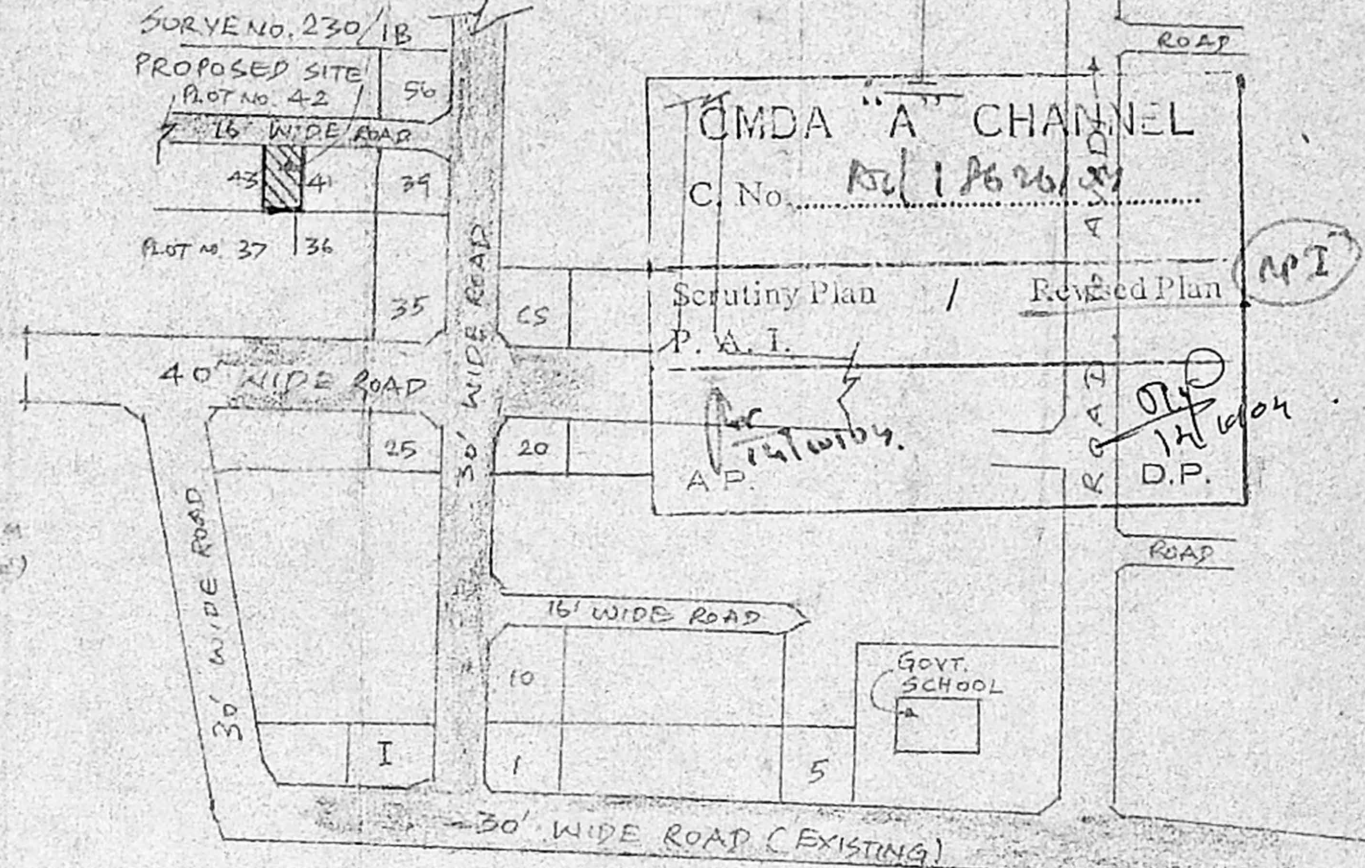 SURVE NO. 230/1B
PROPOSED SITE
PLOT NO. 42
56
16' WIDE ROAD
43
41
39
PLOT NO. 37
36
35
CS
40' WIDE ROAD
30' WIDE ROAD
25
20
30' WIDE ROAD
16' WIDE ROAD
10
I
1
5
GOVT.
SCHOOL
30' WIDE ROAD (EXISTING)
ROAD
CMDA "A" CHANNEL
C. No.
Scrutiny Plan / Revised Plan
P. A. I.
A.P.
D.P.
ROAD
AVADI
ROAD